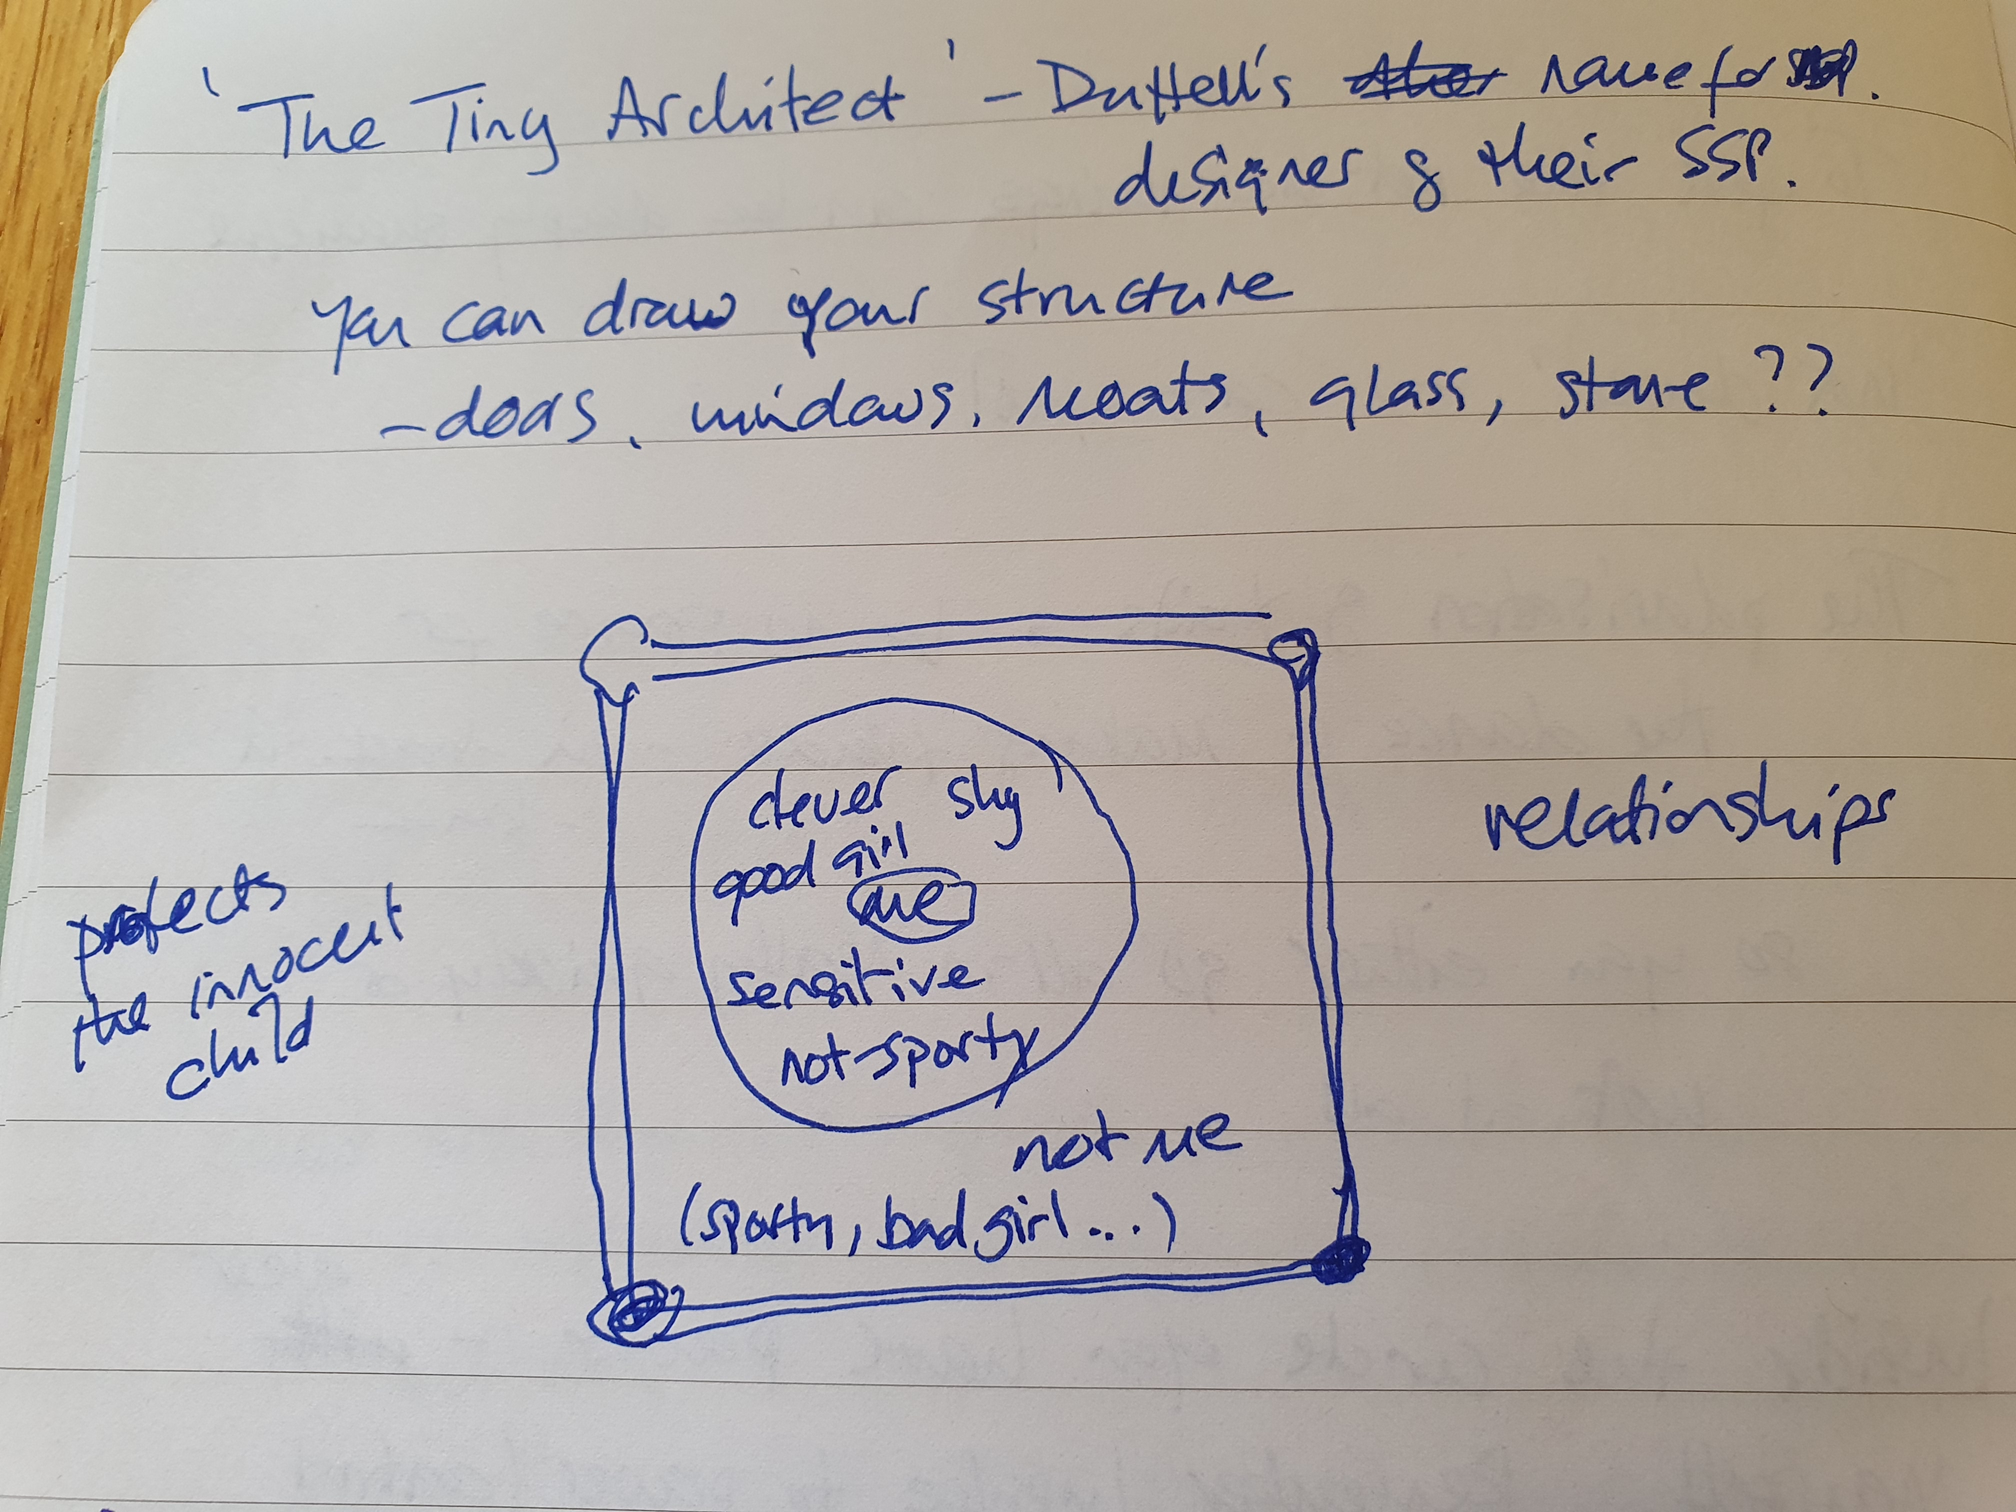 'The Tiny Architect' – Duttell's name for
designer of their SSP.
you can draw your structure
– doors, windows, moats, glass, stone ??
clever shy
good girl
me
sensitive
not-sporty
relationships
protects
the innocent
child
not me
(sporty, bad girl...)